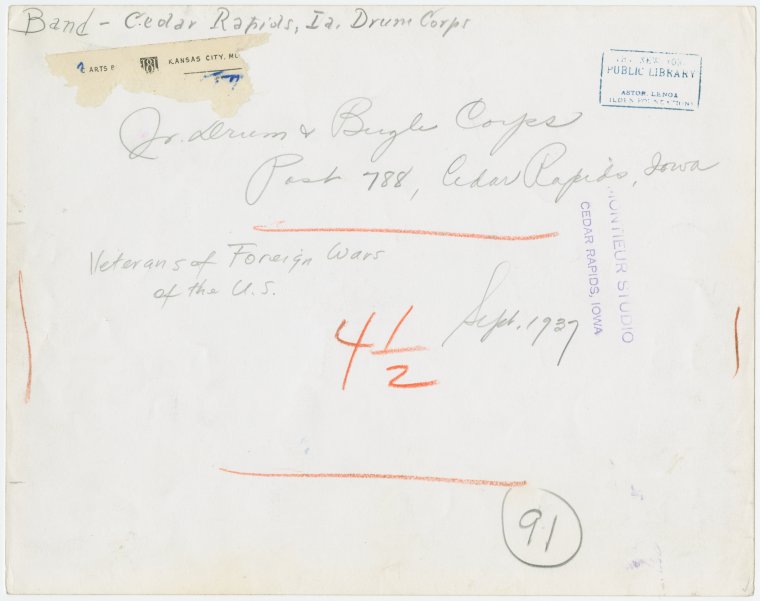 Band - Cedar Rapids, Ia. Drum Corps
ARTS
181
KANSAS CITY, MO
THE NEW YORK
PUBLIC LIBRARY
ASTOR, LENOX
TILDEN FOUNDATIONS
Jr. Drum & Bugle Corps
Post 788, Cedar Rapids, Iowa
MONTIEUR STUDIO
CEDAR RAPIDS, IOWA
Veterans of Foreign Wars
of the U.S.
Sept. 1937
4 1/2
91